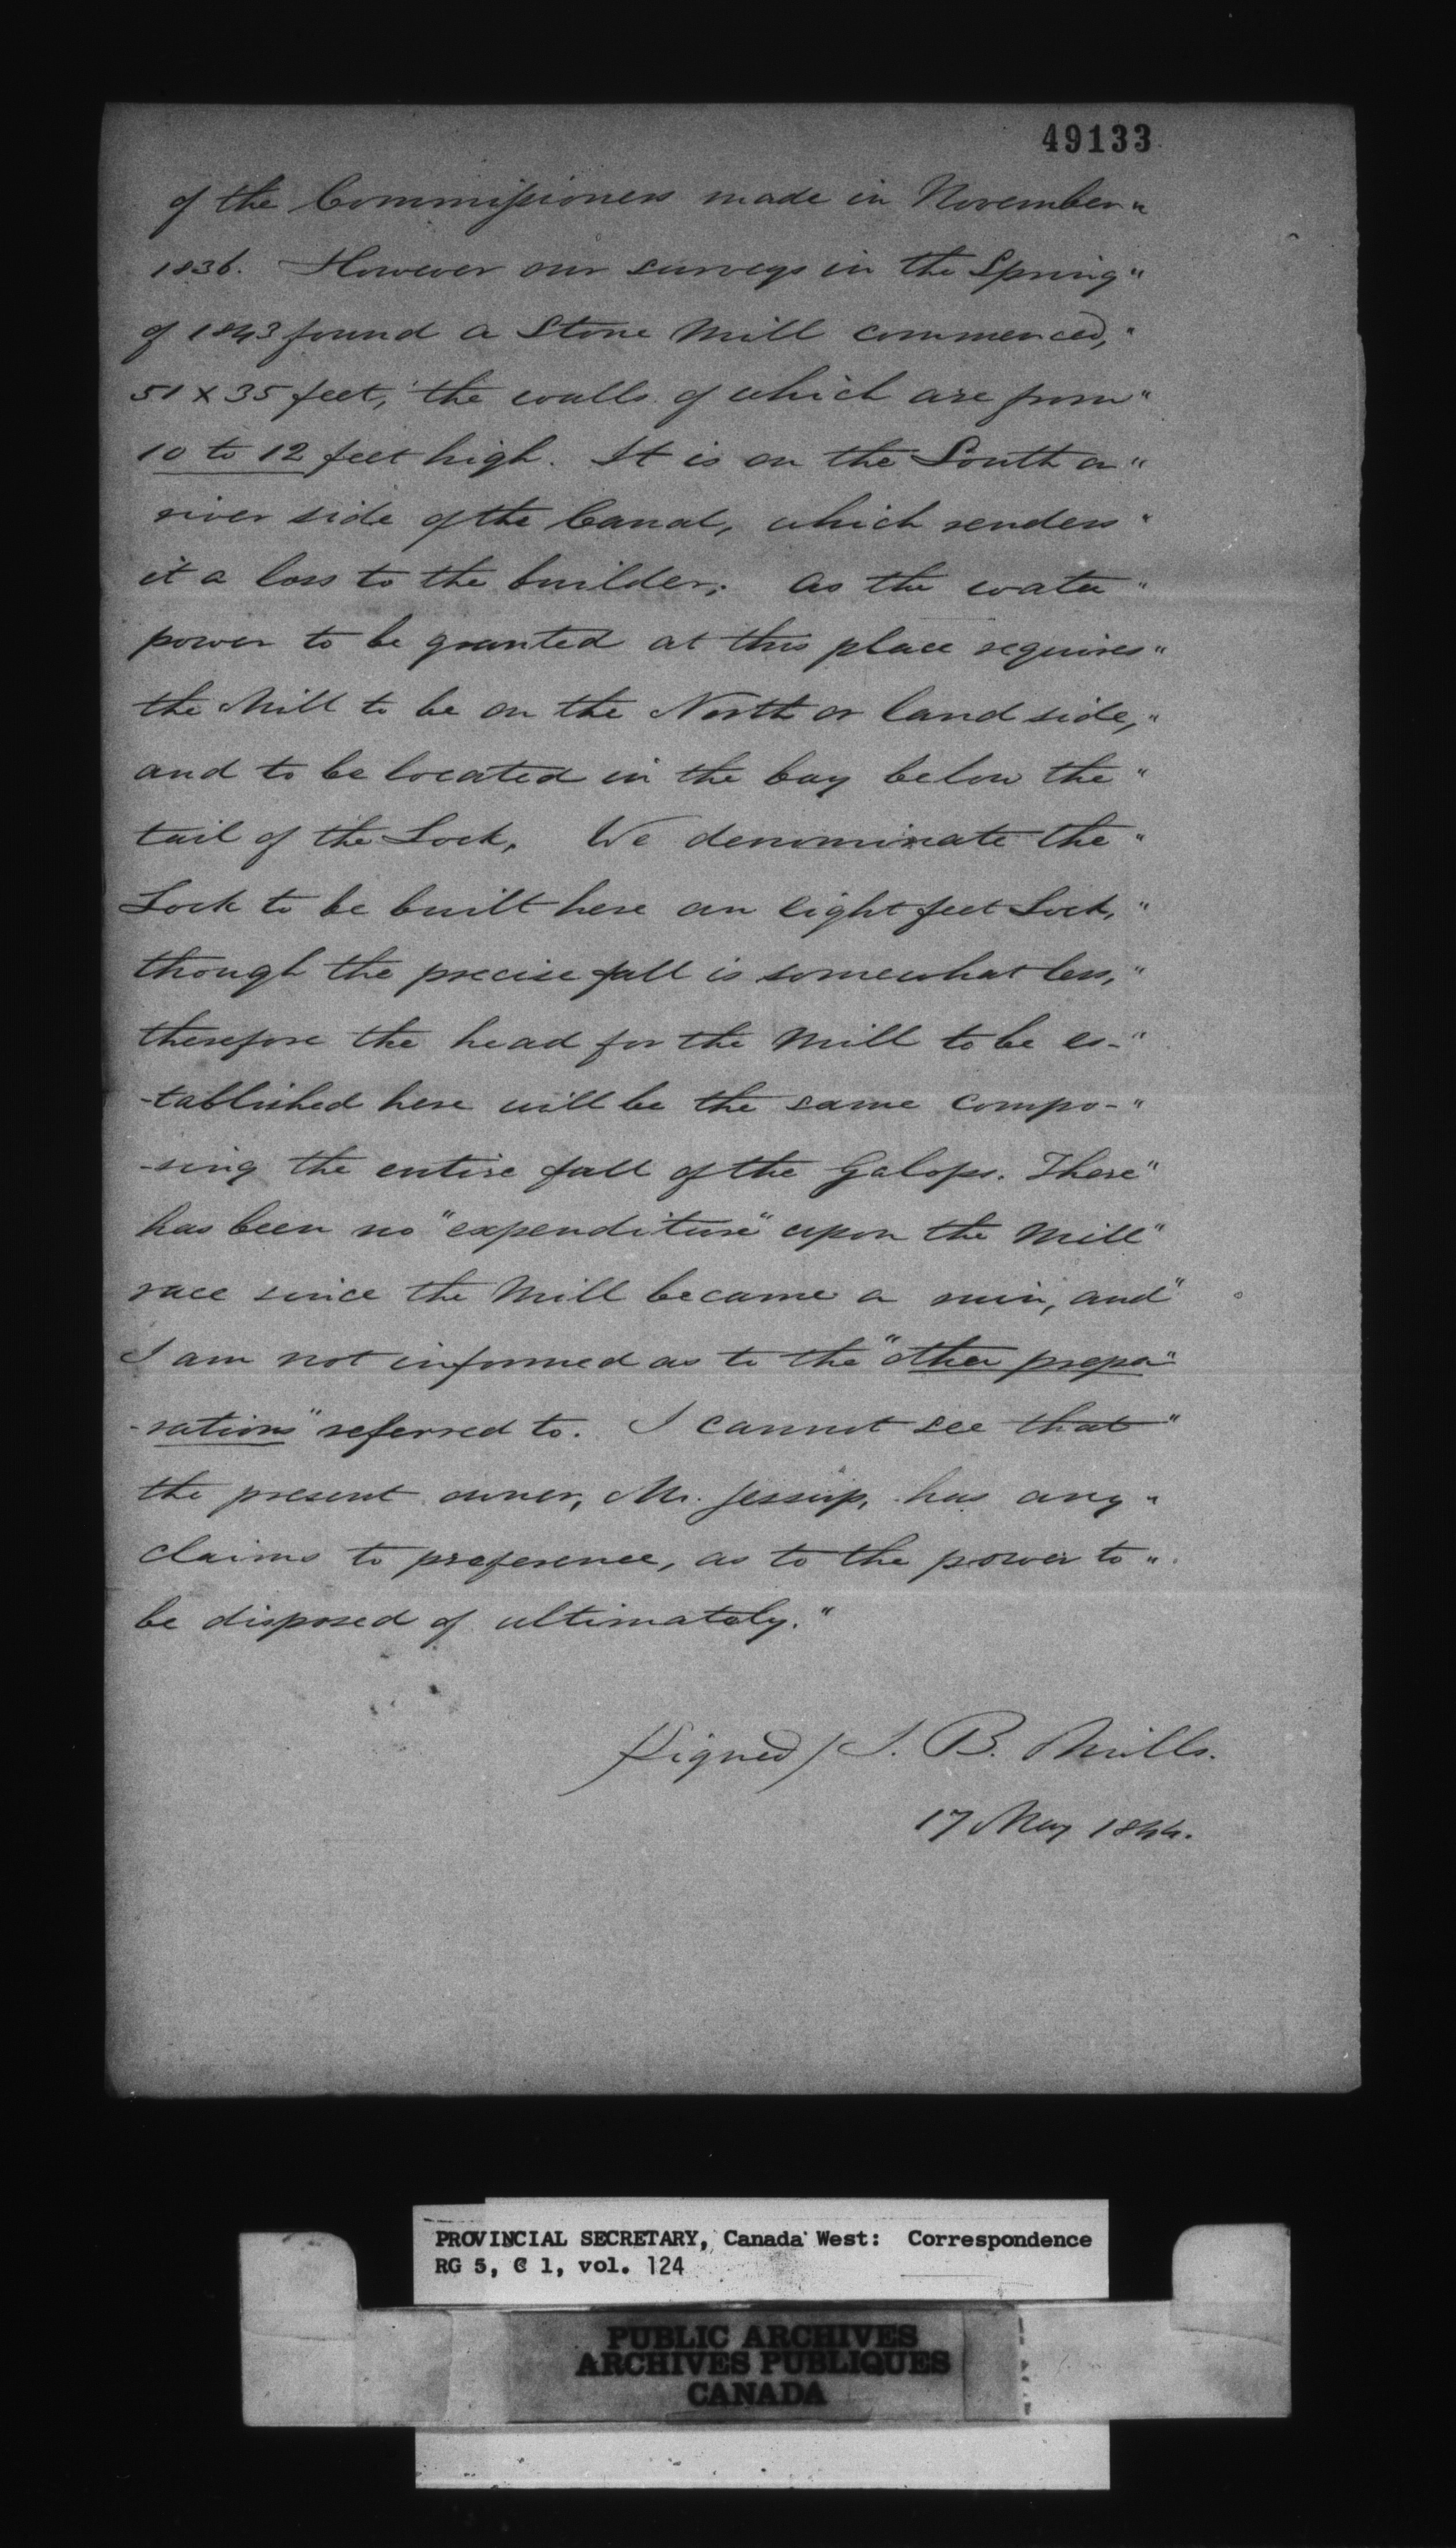 49133
of the Commissioners made in November "
1836. However our surveys in the Spring "
of 1843 found a Stone Mill commenced, "
51 x 35 feet, the walls of which are from "
10 to 12 feet high. It is on the South or "
river side of the Canal, which renders "
it a loss to the builder; as the water "
power to be granted at this place requires "
the Mill to be on the North or land side, "
and to be located in the bay below the "
tail of the Lock. We denominate the "
Lock to be built here an eight feet Lock, "
though the precise fall is somewhat less, "
therefore the head for the Mill to be es- "
-tablished here will be the same compo- "
-sing the entire fall of the Galops. There "
has been no "expenditure" upon the Mill "
race since the Mill became a ruin, and "
I am not informed as to the "other prepa "
-rations" referred to. I cannot see that "
the present owner, Mr. Jessup, has any "
claims to preference, as to the power to "
be disposed of ultimately."
(Signed) J. B. Mills.
17 May 1844.
PROVINCIAL SECRETARY, Canada West: Correspondence
RG 5, C 1, vol. 124
PUBLIC ARCHIVES
ARCHIVES PUBLIQUES
CANADA